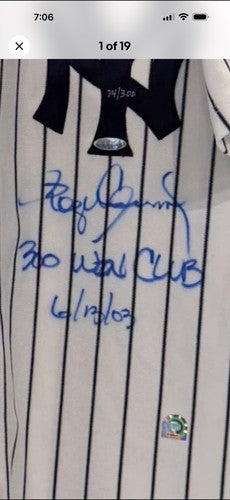 7:06
1 of 19
74/300
Roger Clemens
300 WIN CLUB
6/13/03